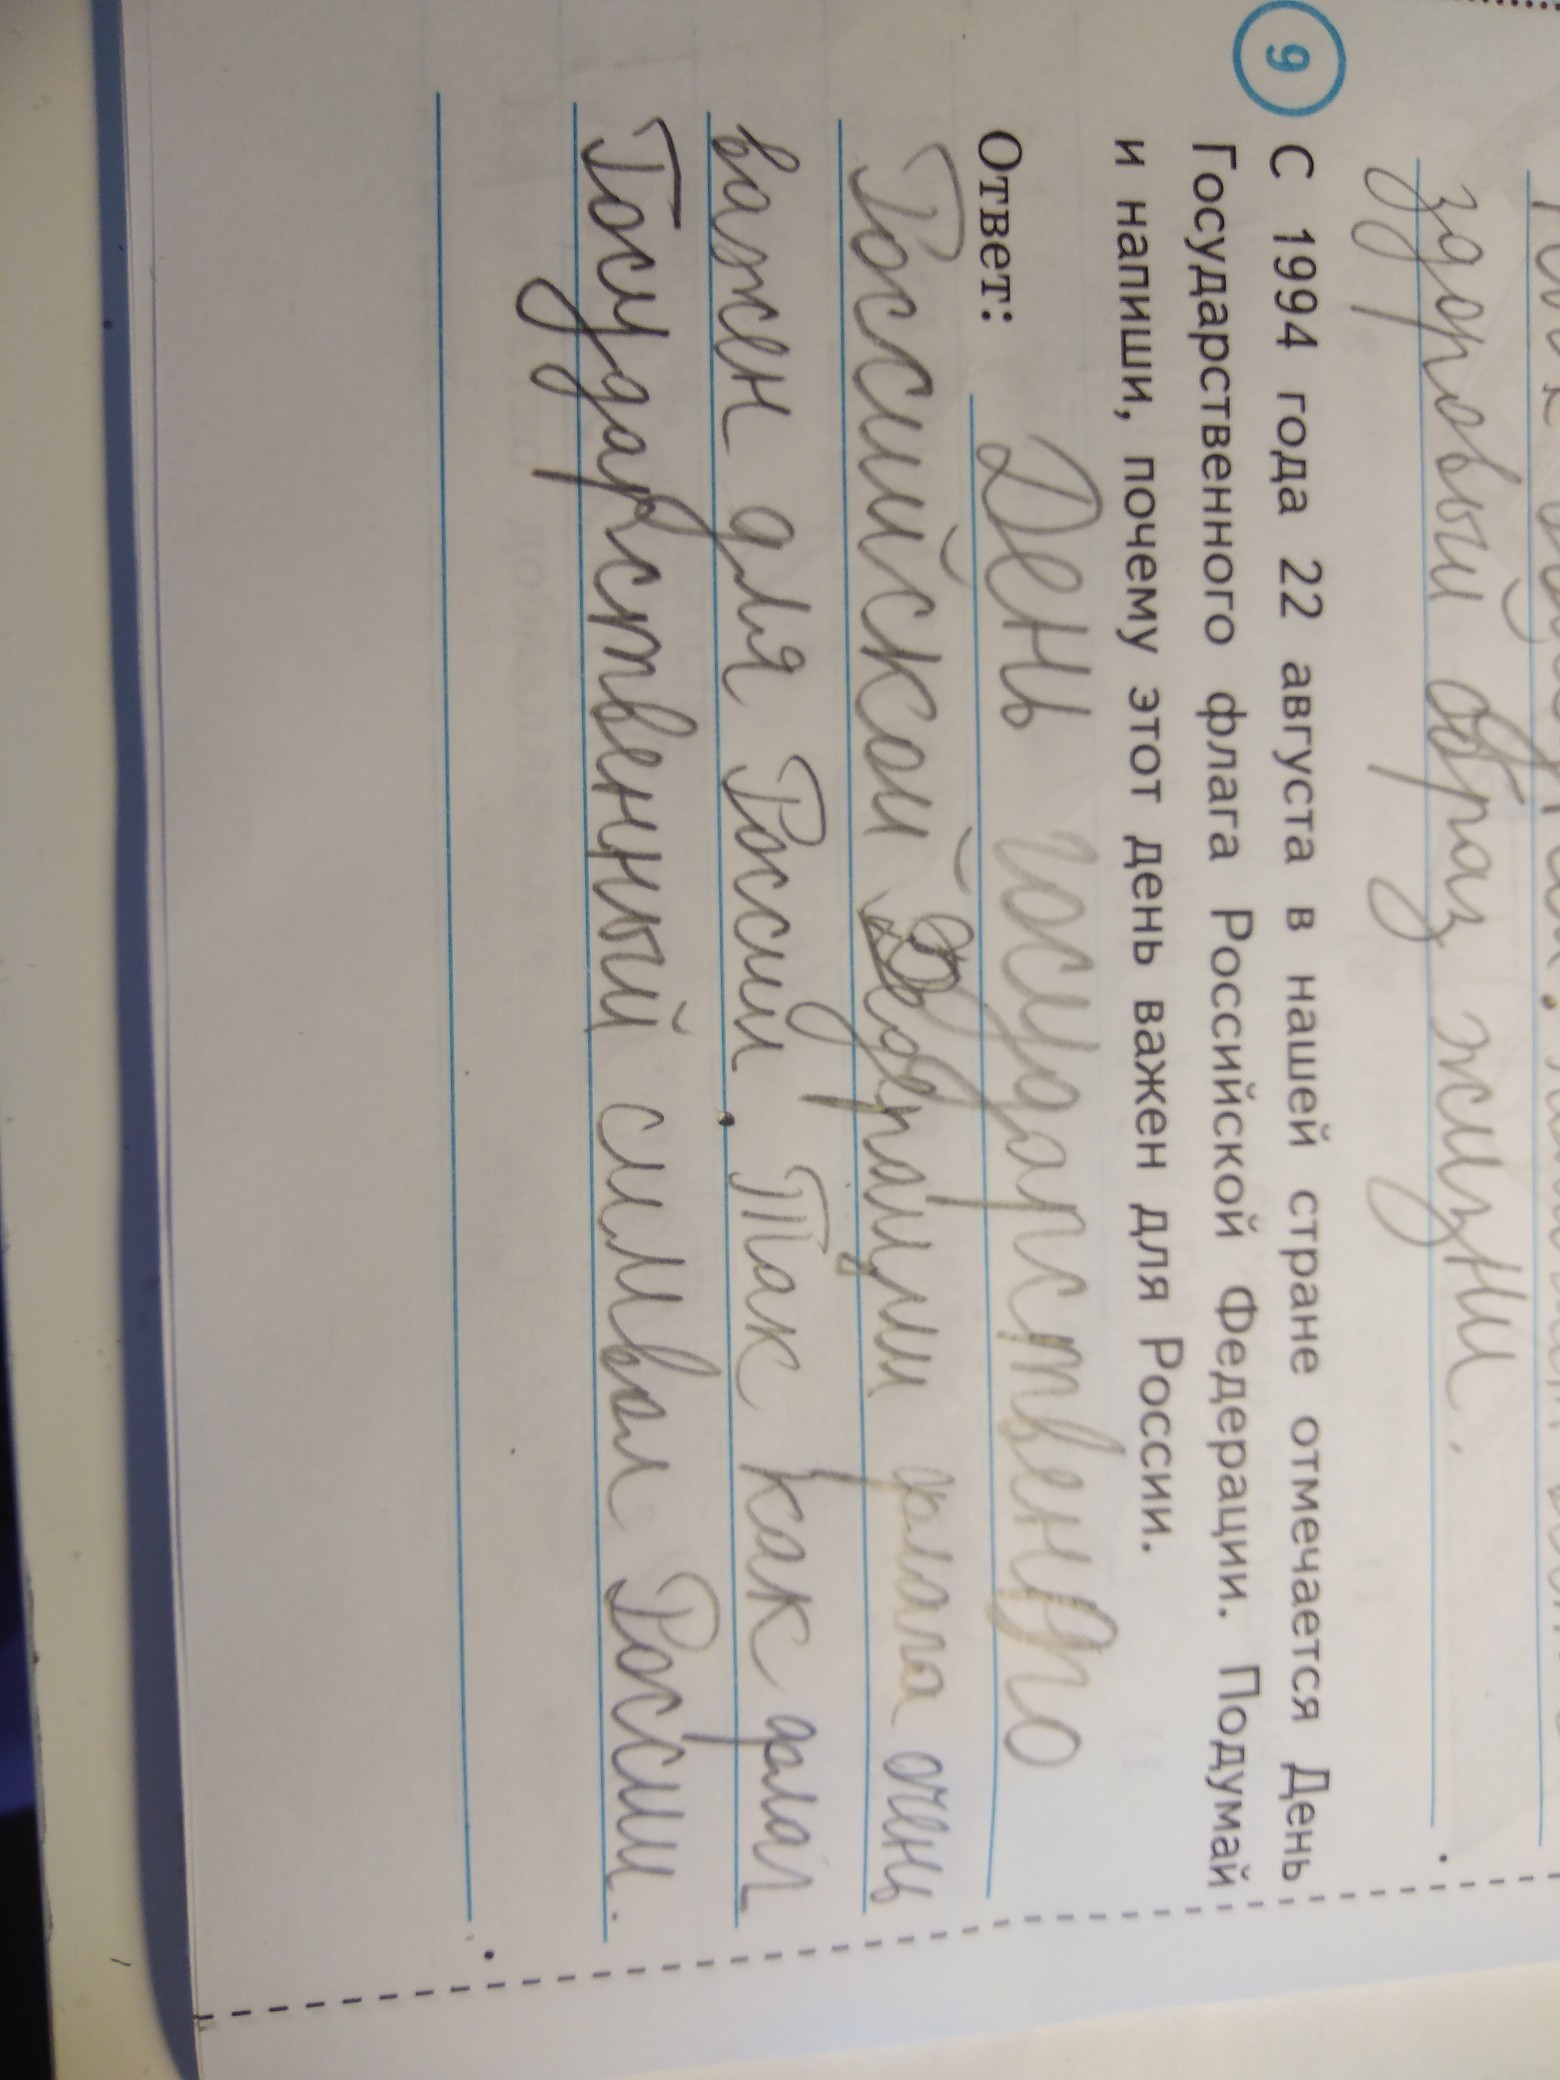 здоровый образ жизни.
9 С 1994 года 22 августа в нашей стране отмечается День
Государственного флага Российской Федерации. Подумай
и напиши, почему этот день важен для России.
Ответ: День государственного
Российской Федерации флага очень
важен для России. Так как флаг
Государственный символ России.